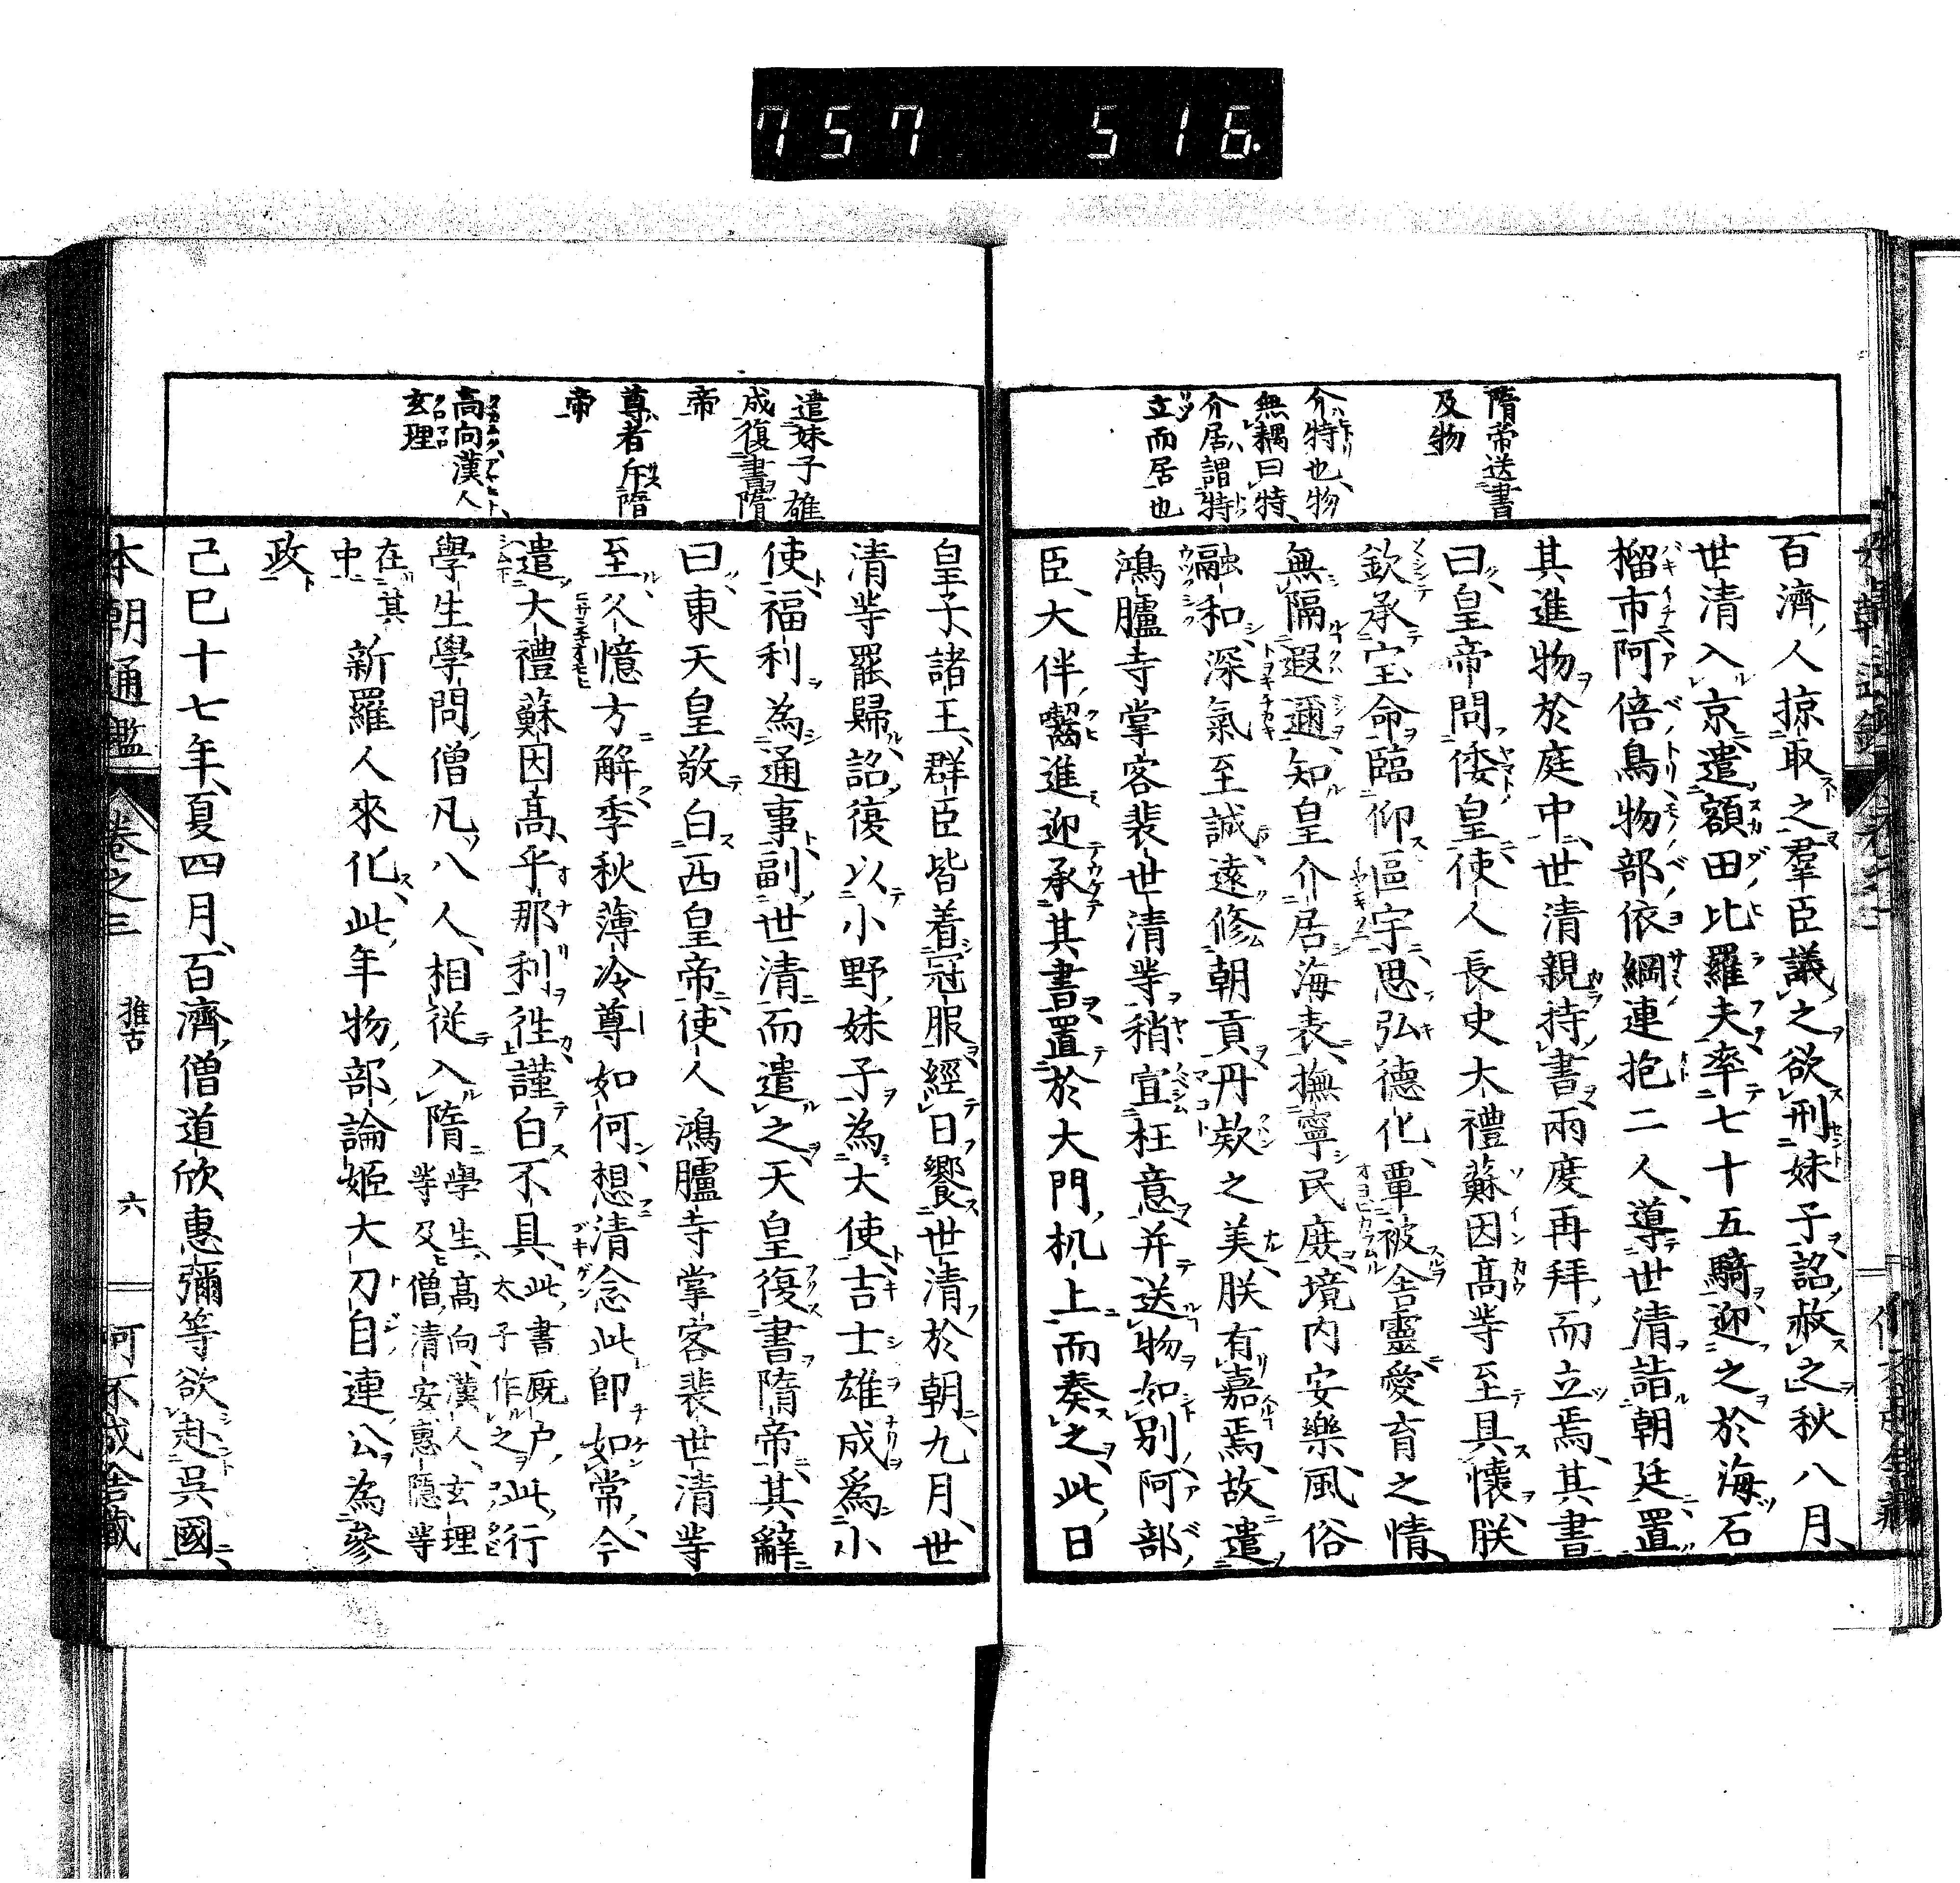 757 516.
隋帝送書
及物
介特也物
無耦曰特
介居謂特
立而居也
百濟人掠取之羣臣議之欲刑妹子詔赦之秋八月
世清入京遣額田比羅夫率七十五騎迎之於海石
榴市阿倍鳥物部依網連抱二人導世清詣朝廷置
其進物於庭中世清親持書兩度再拜而立焉其書
曰皇帝問倭皇使人長吏大禮蘇因高等至具懷朕
欽承宝命臨仰區宇思弘德化覃被含靈愛育之情
無隔遐邇知皇介居海表撫寧民庶境內安樂風俗
融和深氣至誠遠修朝貢丹欵之美朕有嘉焉故遣
鴻臚寺掌客裴世清等稍宜枉意并送物如別阿部
臣大伴囓進迎承其書置於大門机上而奏之此日
遣妹子雄
成復書隋
帝
尊者斥隋
帝
高向漢人
玄理
皇子諸王群臣皆着冠服經日饗世清於朝九月世
清等罷歸詔復以小野妹子為大使吉士雄成爲小
使福利為通事副世清而遣之天皇復書隋帝其辭
曰東天皇敬白西皇帝使人鴻臚寺掌客裴世清等
至久憶方解季秋薄冷尊如何想清念此即如常今
遣大禮蘇因高乎那利往謹白不具此書厩户太子作之此行
學生學問僧凡八人相從入隋學生高向漢人玄理等及僧清安惠隱等
在其中新羅人來化此年物部論姬大刀自連公為參
政
己巳十七年夏四月百濟僧道欣惠彌等欲赴吳國
本朝通鑑 卷之三 推古 六